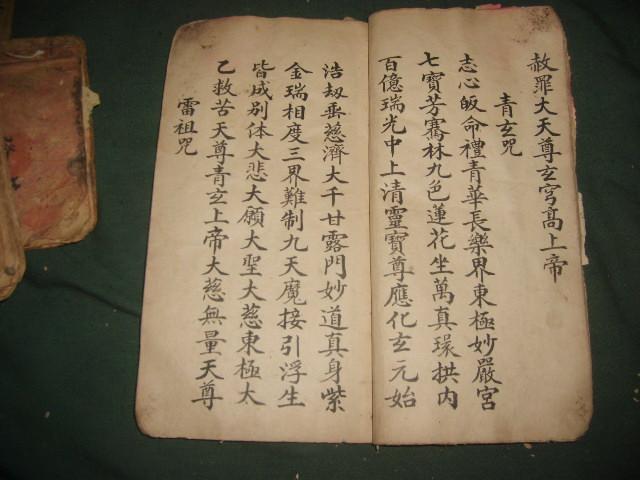 赦罪大天尊玄穹高上帝
青玄咒
志心皈命禮青華長樂界東極妙嚴宮
七寶芳騫林九色蓮花坐萬真環拱内
百億瑞光中上清靈寶尊應化玄元始
浩刼垂慈濟大千甘露門妙道真身紫
金瑞相度三界難制九天魔接引浮生
皆咸别体大悲大願大聖大慈東極太
乙救苦天尊青玄上帝大慈無量天尊
雷祖咒